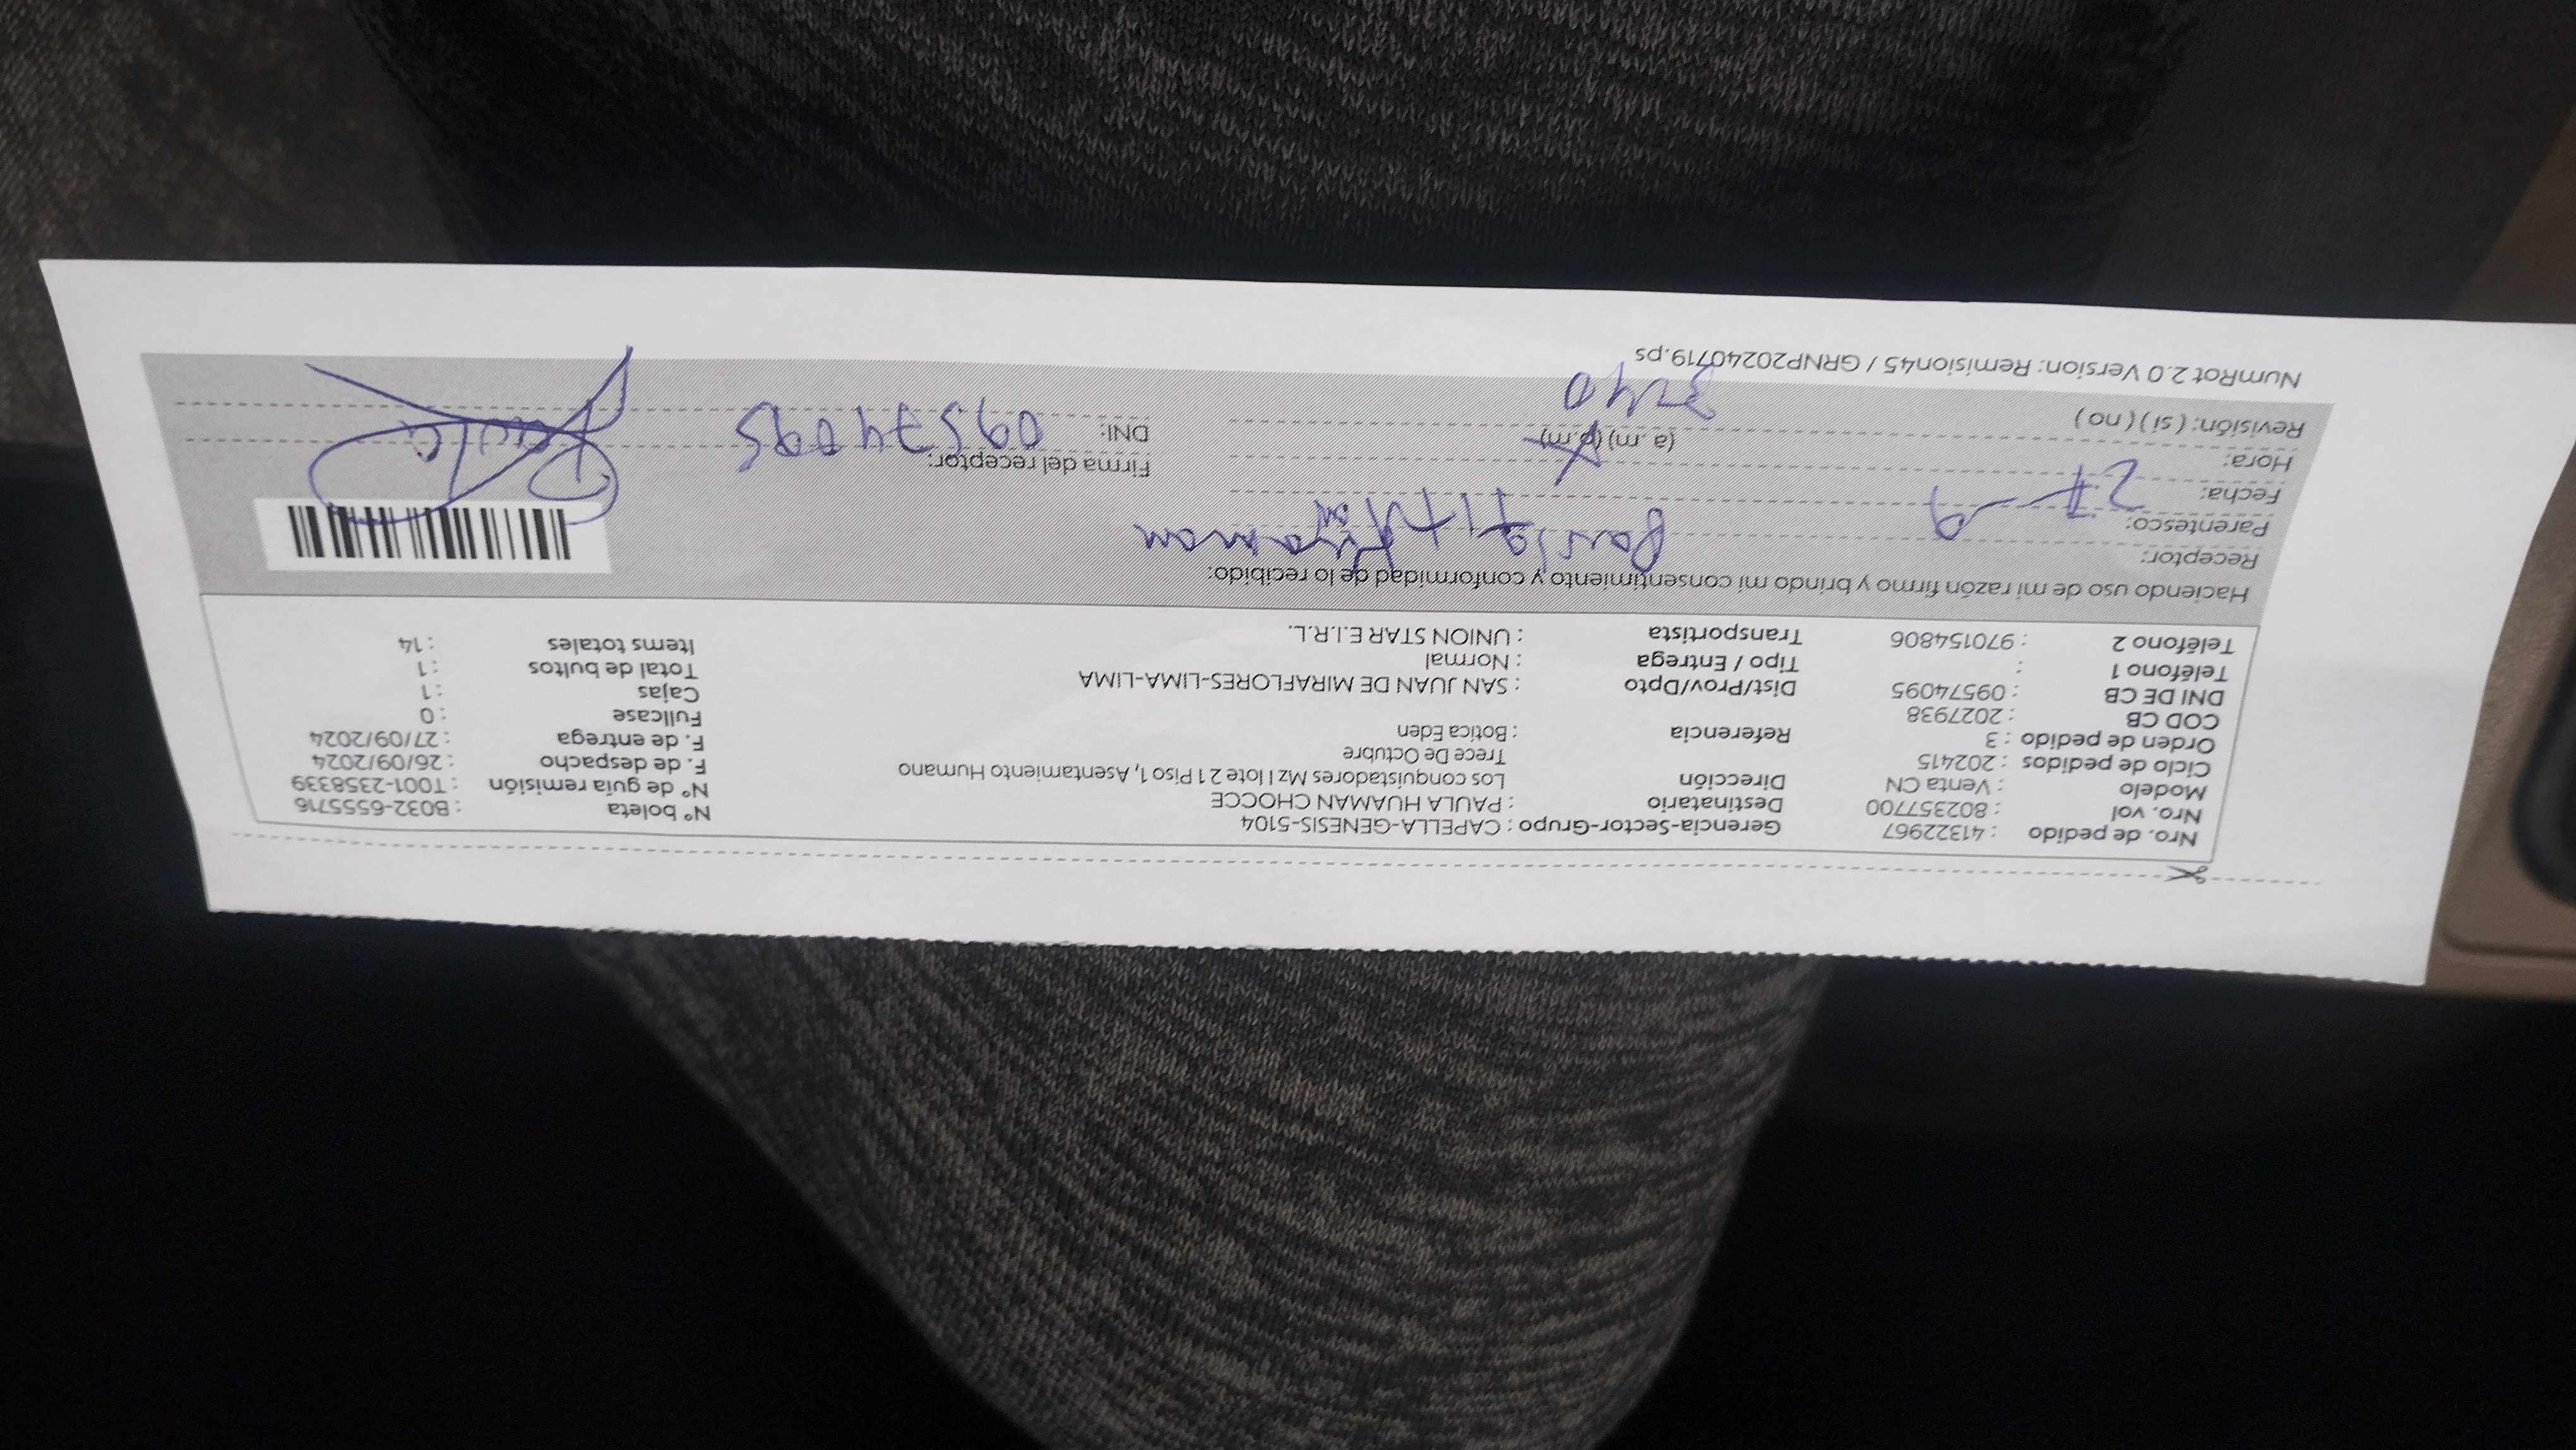 Nro. de pedido : 41322967 Gerencia-Sector-Grupo : CAPELLA-GENESIS-5104 N° boleta : B032-6555716
Nro. vol : 802357700 Destinatario : PAULA HUAMAN CHOCCE N° de guía remisión : T001-2358339
Modelo : Venta CN Dirección Los conquistadores Mz I lote 21 Piso 1, Asentamiento Humano F. de despacho : 26/09/2024
Ciclo de pedidos : 202415 Trece De Octubre F. de entrega : 27/09/2024
Orden de pedido : 3 Referencia : Botica Eden Fullcase : 0
COD CB : 2027938 Cajas : 1
DNI DE CB : 09574095 Dist/Prov/Dpto : SAN JUAN DE MIRAFLORES-LIMA-LIMA Total de bultos : 1
Teléfono 1 : Tipo / Entrega : Normal Items totales : 14
Teléfono 2 : 970154806 Transportista : UNION STAR E.I.R.L.
Haciendo uso de mi razón firmo y brindo mi consentimiento y conformidad de lo recibido:
Receptor: Huaman
Parentesco:
Fecha: 27-9
Hora: (a. m) (p.m) 3:40 Firma del receptor:
Revisión: ( si ) ( no ) DNI: 09574095
NumRot 2.0 Version: Remision45 / GRNP20240719.ps